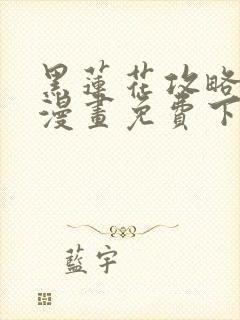 黑蓮花攻略
漫畫免費下
藍宇